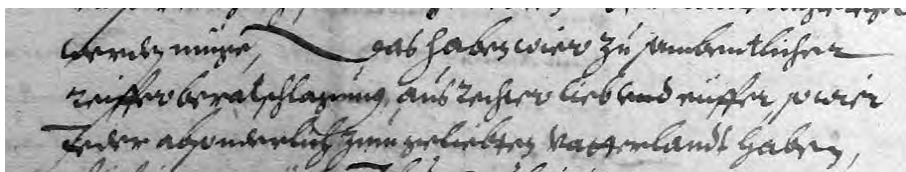 werden müge, das haben wier zu sambentlicher
reiffer beratschlagung, aus rechter lieb und eüffer, so wier
Jeder absonderlich zum geliebten Vatterlandt haben,